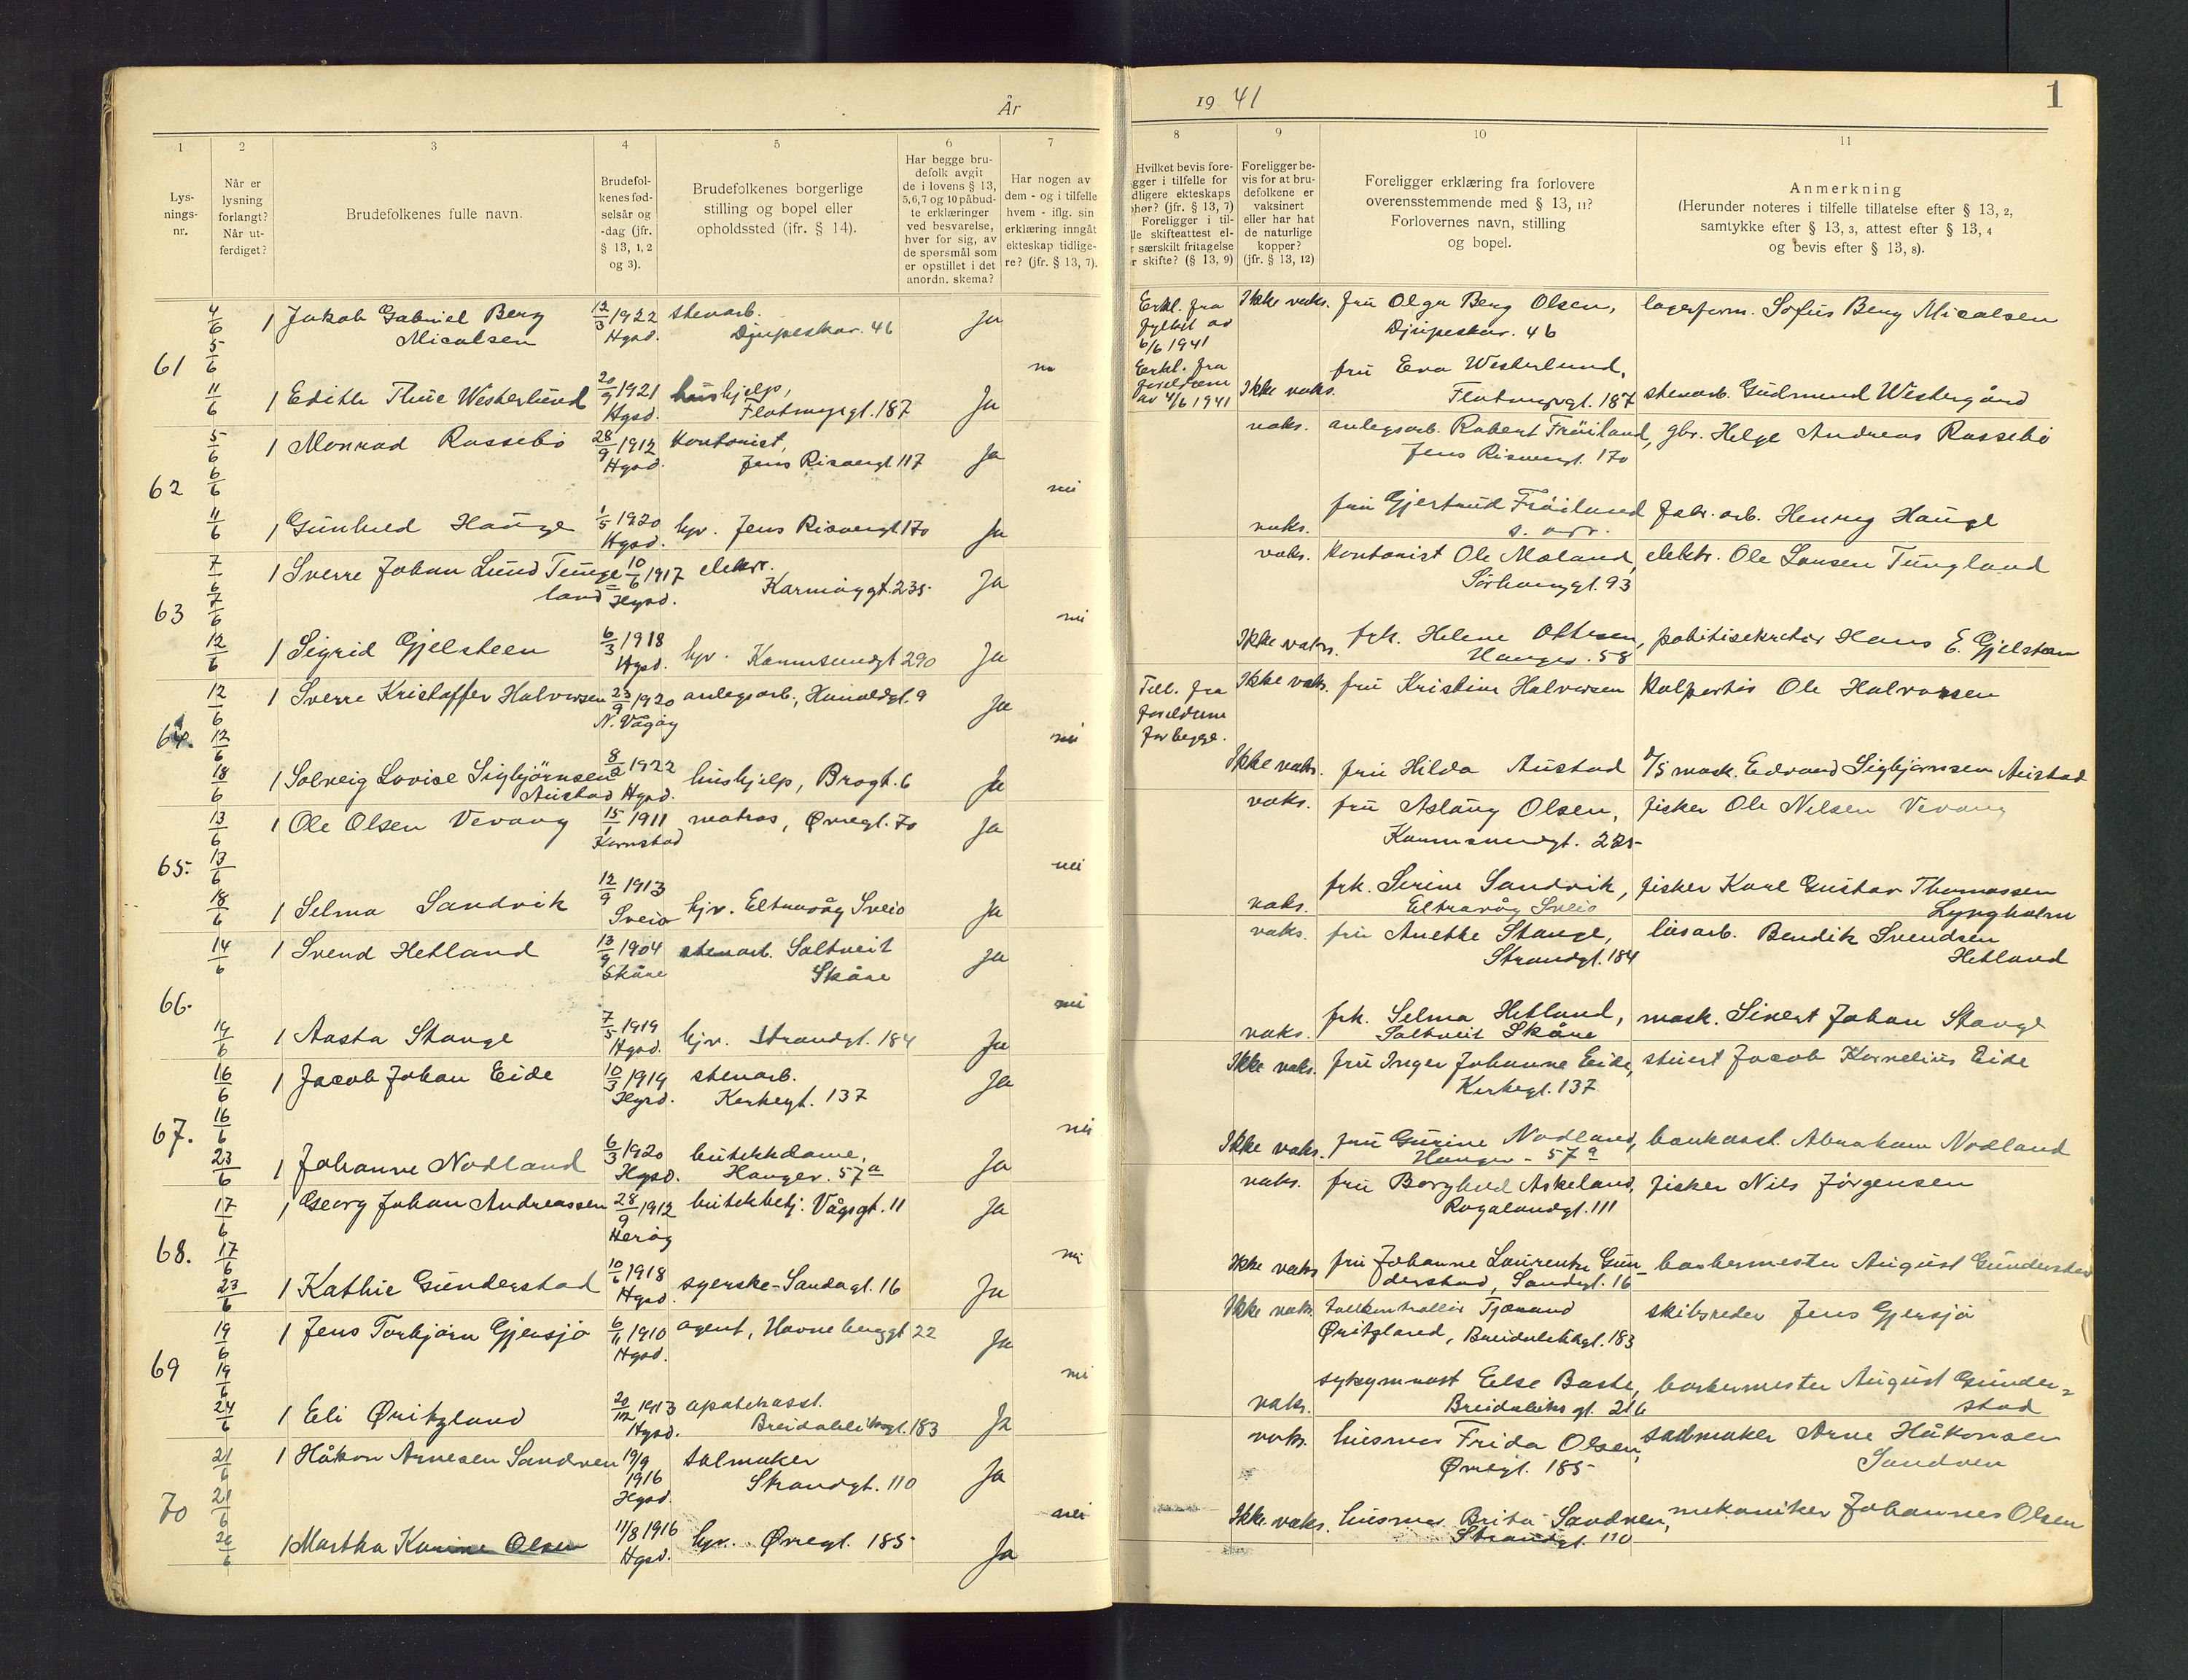 År
1941
1
1
2
3
4
5
6
7
8
9
10
11
Lys-
nings-
nr.
Når er
lysning
forlangt?
Når ut-
ferdiget?
Brudefolkenes fulle navn.
Brudefol-
kenes fød-
selsår og
-dag (jfr.
§ 13, 1, 2
og 3).
Brudefolkenes borgerlige
stilling og bopel eller
opholdssted (ifr. § 14).
Har begge bru-
defolk avgit
de i lovens § 13,
5,6,7 og 10 påbud-
te erklæringer
ved besvarelse,
hver for sig, av
de spørsmål som
er opstillet i det
anordn. skema?
Har nogen av
dem - og i tilfelle
hvem - iflg. sin
erklæring inngåt
ekteskap tidlige-
re? (jfr. § 13, 7).
Hvilket bevis fore-
gger i tilfelle for
dligere ekteskaps
phør? (jfr. § 13, 7)
Foreligger i til-
lle skifteattest el-
r særskilt fritagelse
r skifte? (§ 13, 9)
Foreligger be-
vis for at bru-
defolkene er
vaksinert
eller har hat
de naturlige
kopper?
(jfr. § 13, 12)
Foreligger erklæring fra forlovere
overensstemmende med § 13, 11?
Forlovernes navn, stilling
og bopel.
Anmerkning
(Herunder noteres i tilfelle tillatelse efter § 13, 2,
samtykke efter § 13, 3, attest efter § 13, 4
og bevis efter § 13, 8).
61
4/6
5/6
11/6
1 Jakob Gabriel Berg
Micalsen
12/3 1922
Hgsd.
stenarb.
Djupeskar. 46
Ja
Erkl. fra
fylket av
6/6 1941
Ikke vaks.
fru Olga Berg Olsen,
Djupeskar. 46
lagerform. Sofus Berg Micalsen
1 Edith Thue Westerlund
20/9 1921
Hgsd.
hushjelp,
Flotmyrgt. 187
Ja
Erkl. fra
foreldrene
av 4/6 1941
Ikke vaks.
fru Eva Westerlund,
Flotmyrgt. 187
stenarb. Gudmund Westergård
62
5/6
6/6
11/6
1 Monrad Rossebö
28/9 1912
Hgsd.
Kontorist,
Jens Risøergt 117
Ja
nei
vaks.
anlegsarb. Robert Fröiland,
Jens Risøergt. 170
gbr. Helge Andreas Rossebö
1 Gunhild Hauge
1/5 1920
Hgsd.
hjv. Jens Risøergt 170
Ja
vaks.
fru Gjertrud Fröiland
fabr. arb. Henrry Hauge
63
7/6
7/6
12/6
1 Sverre Johan Lund Tunge
land
10/6 1917
Hgsd.
elektr.
Karmöygt. 235
Ja
nei
vaks.
Kontorist Ole Moland,
Sörhauggt. 93
elektr. Ole Larsen Tungland
1 Sigrid Gjelsteen
6/3 1918
Hgsd.
hjv. Karmsundgt 290
Ja
Ikke vaks.
frk. Helene Ottesen,
Haugev. 58
politisekretær Hans E. Gjelsteen
64.
12/6
12/6
18/6
1 Sverre Kristoffer Halvorsen
23/9 1920
N. Vågöy
anlegsarb., Haraldgt. 9
Ja
nei
Till. fra
foreldrene
for begge.
Ikke vaks.
fru Kristine Halvorsen
Kolportör Ole Halvorsen
1 Solveig Lovise Sigbjörnsen
Austad
8/2 1922
Hgsd.
hushjelp, Brogt. 6
Ja
Ikke vaks.
fru Hilda Austad
D/S mask. Edvard Sigbjörnsen Austad
65.
13/6
13/6
18/6
1 Ole Olsen Vevang
15/1 1911
Kornstad
matros, Øvregt. 70
Ja
nei
vaks.
fru Aslaug Olsen,
Karmsundgt. 225
fisker Ole Nilsen Vevang
1 Selma Sandvik
12/9 1913
Sveio
hjv. Eltravåg Sveio
Ja
vaks.
frk. Serine Sandvik,
Eltravåg Sveio
fisker Karl Gustav Thomassen
Lyngholm
66.
14/6
14/6
1 Svend Hetland
13/9 1904
Skåre
stenarb. Saltveit
Skåre
Ja
nei
vaks.
fru Anethe Stange,
Strandgt. 184
løsarb. Bendik Svendsen
Hetland
1 Aasta Stange
7/5 1919
Hgsd.
hjv. Strandgt. 184
Ja
vaks.
frk. Selma Hetland,
Saltveit Skåre
mask. Sivert Johan Stange
67.
16/6
16/6
23/6
1 Jacob Johan Eide
10/3 1919
Hgsd.
stenarb.
Kirkegt. 137
Ja
nei
Ikke vaks.
fru Inger Johanne Eide,
Kirkegt. 137
stuert Jacob Kornelius Eide
1 Johanne Nodland
6/3 1920
Hgsd.
butikkdame,
Haugev. 57 a
Ja
Ikke vaks.
fru Gurine Nodland,
Haugev. 57 a
bankasst. Abraham Nodland
68.
17/6
17/6
23/6
1 Georg Johan Andreassen
28/9 1912
Heröy
butikkbetj. Vågsgt. 11
Ja
nei
vaks.
fru Borghild Askeland,
Rogalandgt. 111
fisker Nils Jörgensen
1 Kathie Gunderstad
10/6 1918
Hgsd.
syerske Sandagt. 16
Ja
Ikke vaks
fru Johanne Laurentze Gun-
derstad, Sandgt. 16
barbermester August Gunderstad
69
19/6
19/6
24/6
1 Jens Torbjörn Gjersjö
6/11 1910
Hgsd.
agent, Havneberggt 22
Ja
nei
Ikke vaks.
tollkontrollör Tjærand
Øritzland, Breidablikgt. 183
skibsreder Jens Gjersjö
1 Eli Øritzland
20/12 1913
Hgsd.
apotekasst.
Breidablikgt. 183
Ja
vaks.
sykegymnast Else Baste,
Breidablikgt. 216
barbermester August Gunder-
stad
70
21/6
21/6
26/6
1 Håkon Arnesen Sandven
19/9
1916
Hgsd.
salmaker
Strandgt. 110
Ja
nei
vaks.
husmor Frida Olsen,
Øvregt. 185
salmaker Arne Håkonsen
Sandven
1 Martha Karine Olsen
11/8 1916
Hgsd.
hjv. Øvregt. 185
Ja
Ikke vaks.
husmor Brita Sandven,
Strandgt. 110
mekaniker Johannes Olsen